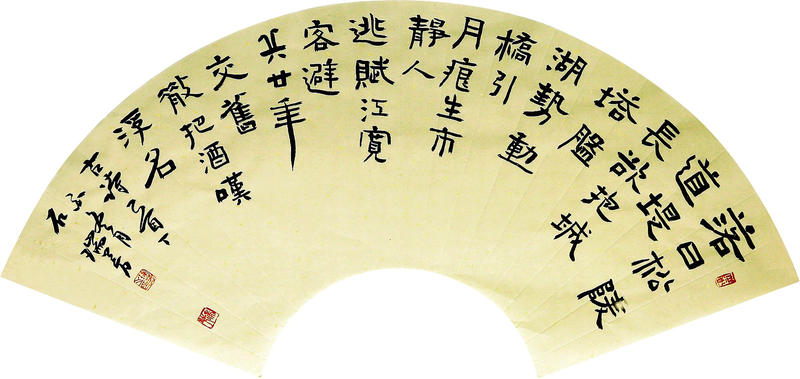 落日松陵
道長堤欲抱城
塔盤
湖勢動
橋引
月痕生市
靜人
逃賦江寬
客避
兵廿年
交舊
散把酒嘆
浮名
古詩